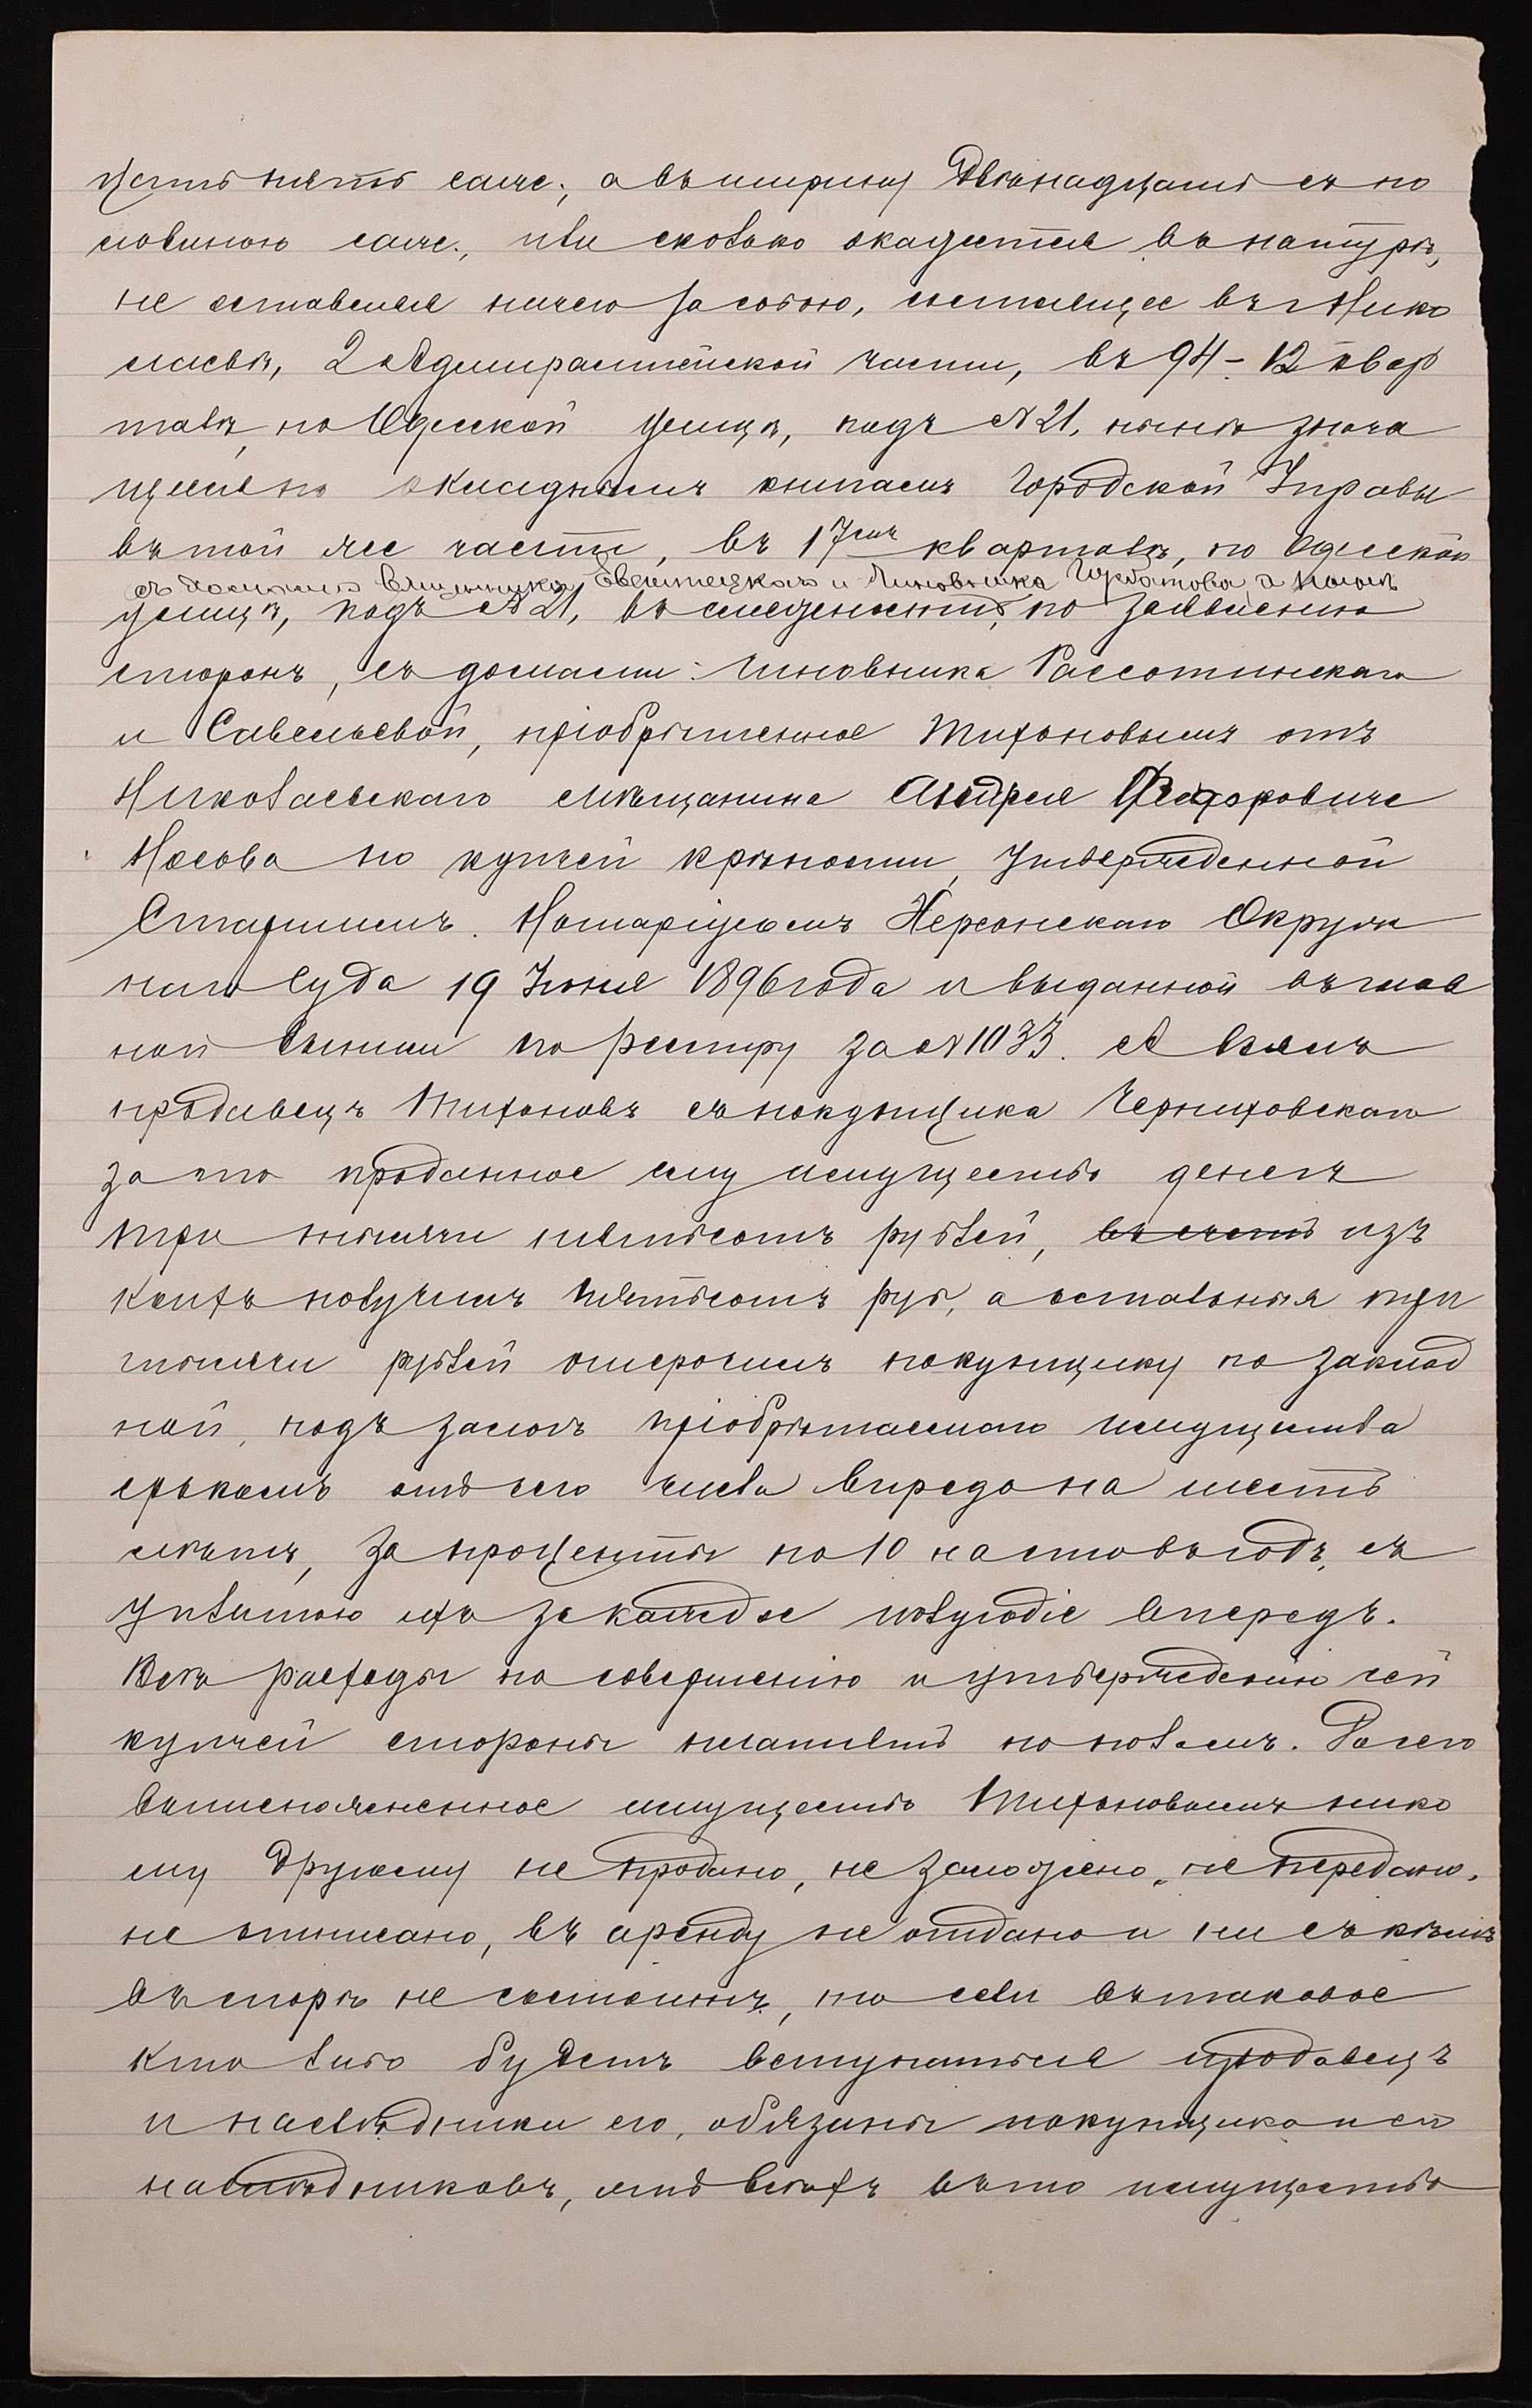 цать пять саж., а въ ширину двѣнадцать съ по
ловиною саж., или сколько окажется въ натурѣ,
не оставляя ничего за собою, состоящее въ г. Нико
лаевѣ, 2 Адмиралтейской части, въ 94-12 квар
талѣ, по Одесской улицѣ, подъ № 21, нынѣ знача
щееся по окладнымъ книгамъ Городской Управы
въ той же части, въ 17омъ кварталѣ, по Одесской
съ домами Евентецкаго и Чиновника Горбатова, а ныне
улицѣ, подъ № 21, въ смежности, по заявленію
сторонъ, съ домами: Чиновника Рассотинскаго
и Савельевой, пріобрѣтенное Тихоновымъ отъ
Николаевскаго мѣщанина Андрея Федоровича
Носова по купчей крѣпости, утвержденной
Старшимъ Нотаріусомъ Херсонскаго Окруж
наго Суда 19 Іюня 1896 года и выданной въ глав
ной выписи по реестру за № 1033. А взялъ
продавецъ Тихоновъ съ покупщика Черниховскаго
за то проданное ему имущество денегъ
три тысячи пятьсотъ рублей, въ счетъ изъ
коихъ получилъ пятьсотъ руб., а остальныя три
тысячи рублей отсрочилъ покупщику по заклад
ной, подъ залогъ пріобрѣтаемаго имущества
срокомъ отъ сего числа впредь на шесть
лѣтъ, за проценты по 10 на сто въ годъ, съ
уплатою ихъ за каждое полугодіе впередъ.
Всѣ расходы по совершенію и утвержденію сей
купчей стороны платятъ по поламъ. До сего
вышеозначенное имущество Тихоновымъ нико
му другому не продано, не заложено, не передано,
не описано, въ аренду не отдано и ни съ кѣмъ
въ спорѣ не состоитъ, но если въ таковое
кто либо будетъ вступаться продавецъ
и наслѣдники его, обязаны покупщика и его
наслѣдниковъ, отъ всѣхъ въ то имущество